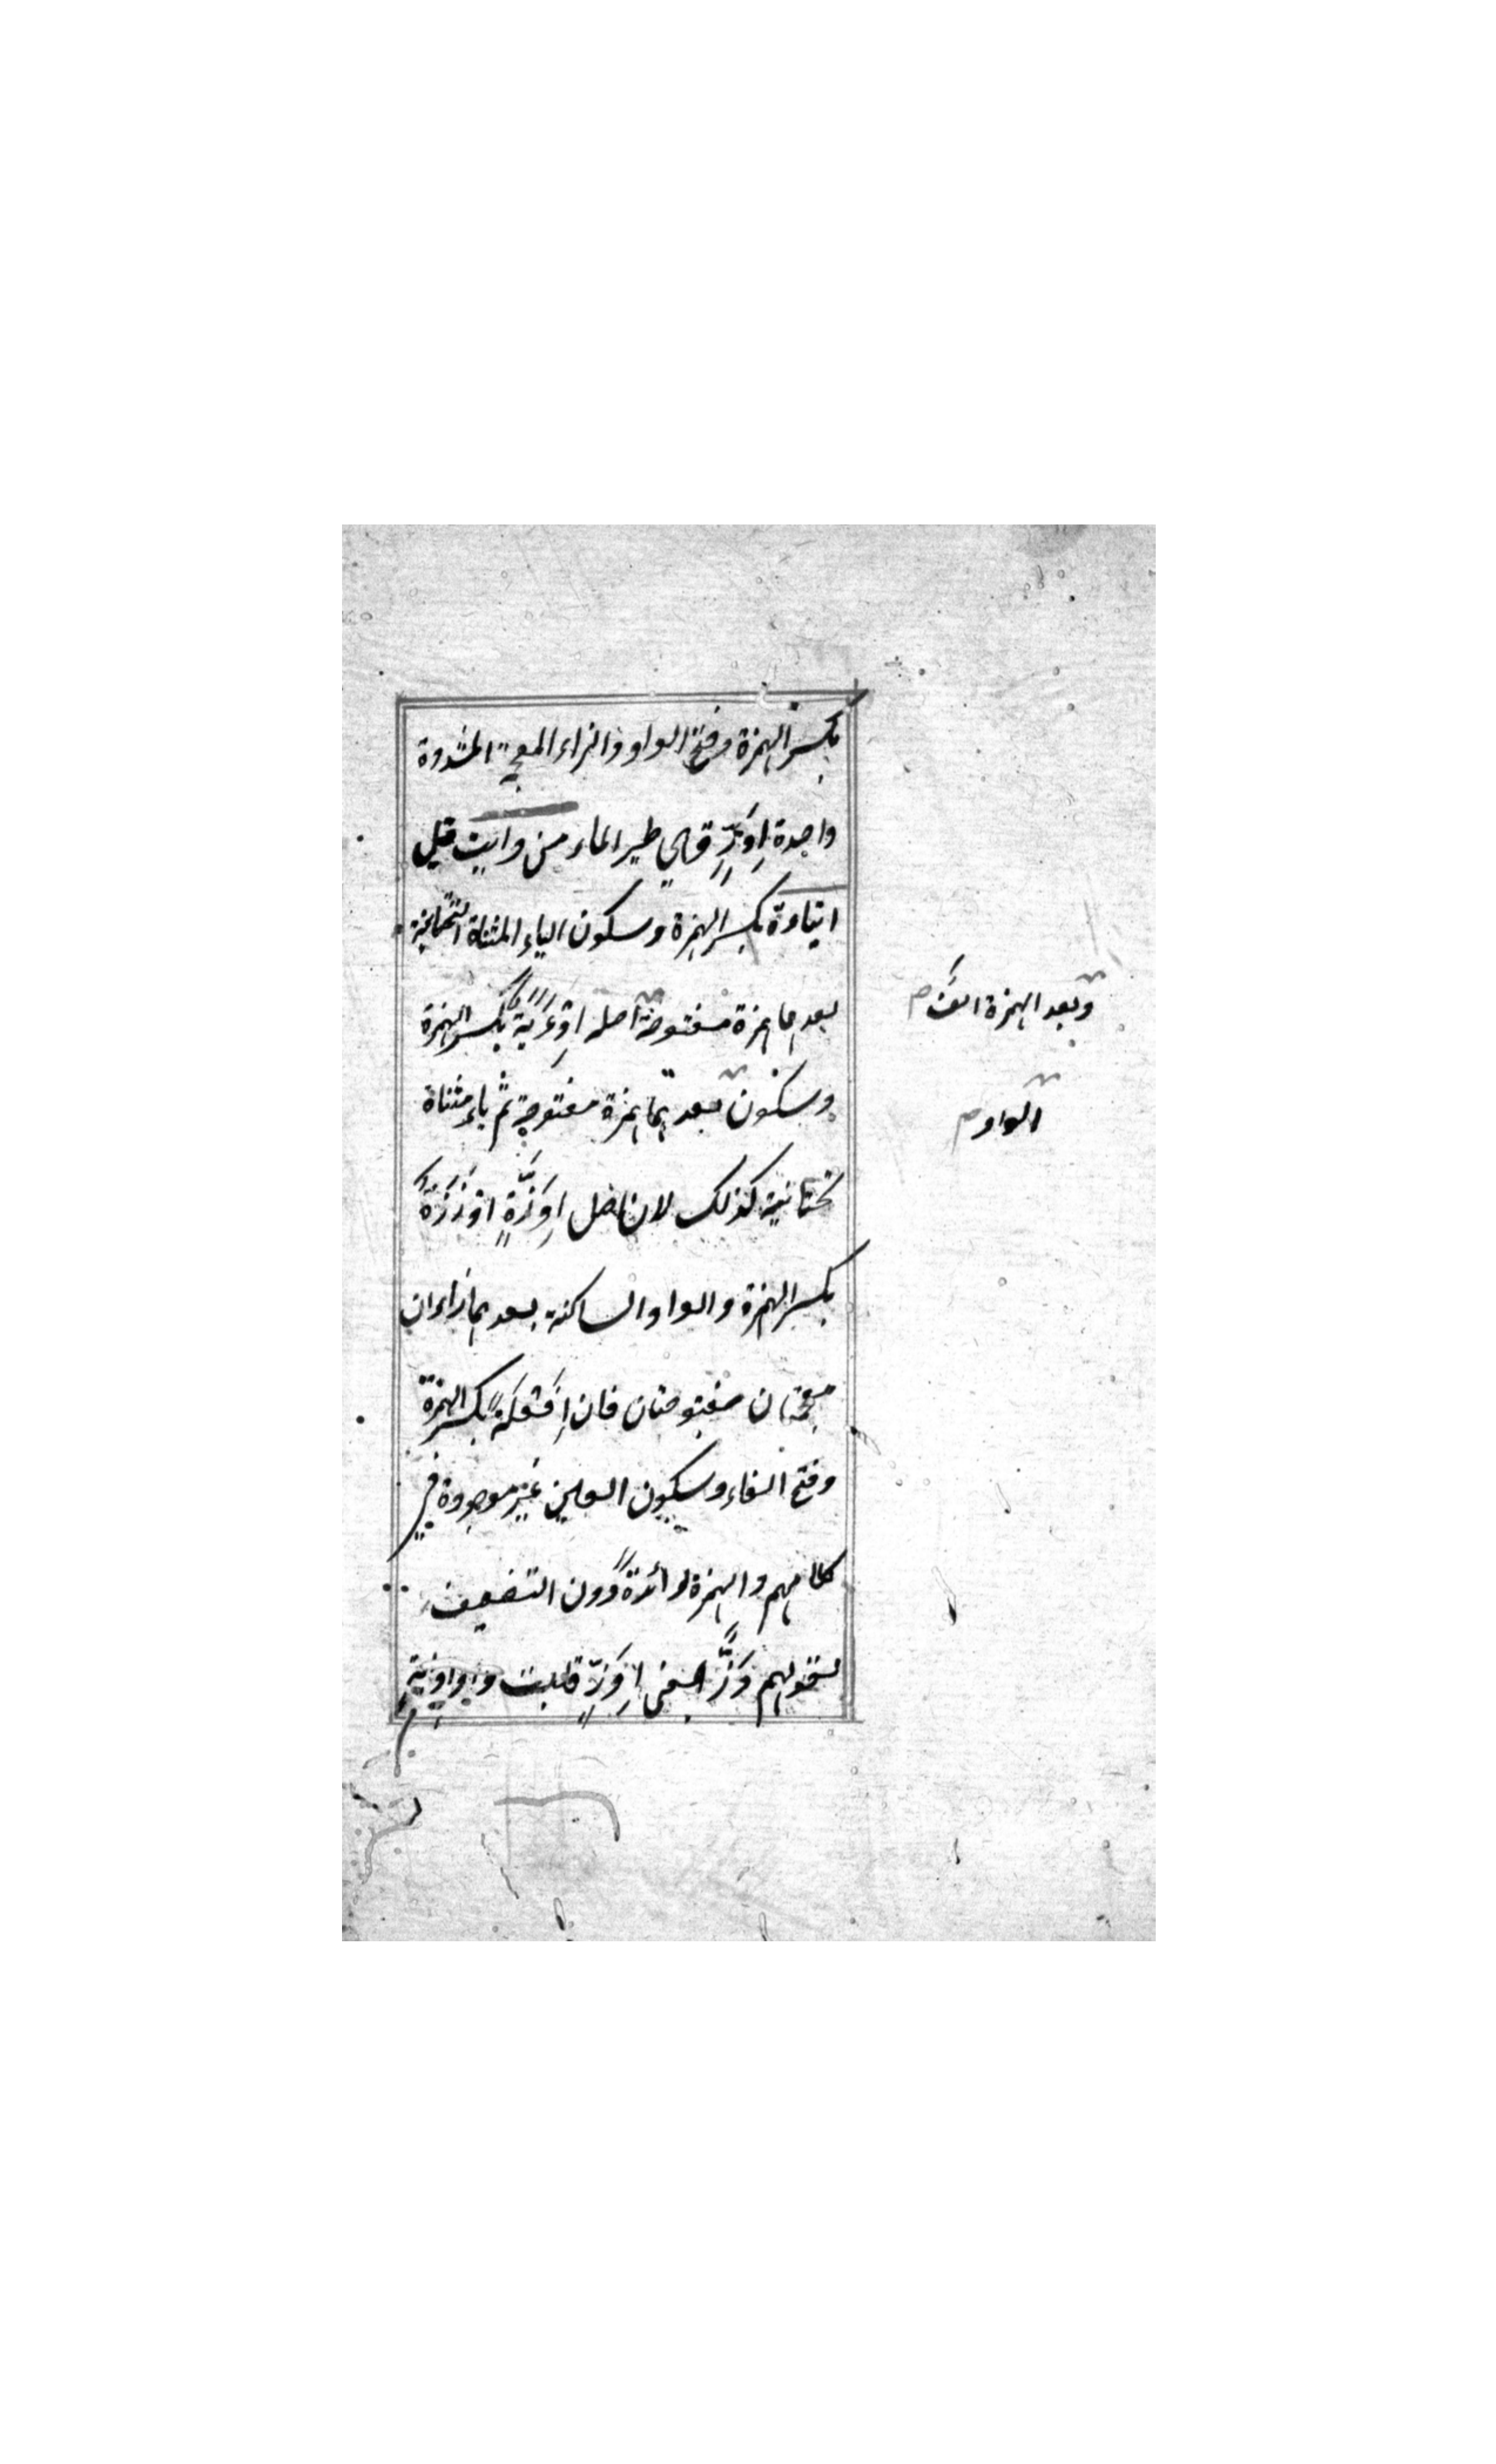 بكسر الهمزة وفتح الواو والزاء المعجمة المشددة
واحدة اِوَزّ وهي طير الماء من وايت قيل
ايئاوة بكسر الهمزة وسكون الياء المثناة التحتانية
بعدها همزة مفتوحة اصله اِوْءَيَةٌ بكسر الهمزة
وسكون بعدها همزة مفتوحة ثم ياء مثناة
تحتانية كذلك لان اصل اِوَزَّةٍ اوْزَزَةٌ
بكسر الهمزة والواو الساكنة بعدها زاءان
معجمتان مفتوحتان فان اِفَعْلَةً بكسر الهمزة
وفتح الفاء وسكون العين غير موجودة في
كلامهم والهمزة زائدةٌ دون التضعيف
لقولهم وَزٌّ بمعنى اِوَزّ قلبت واو
وبعد الهمزة الف م
الواو م